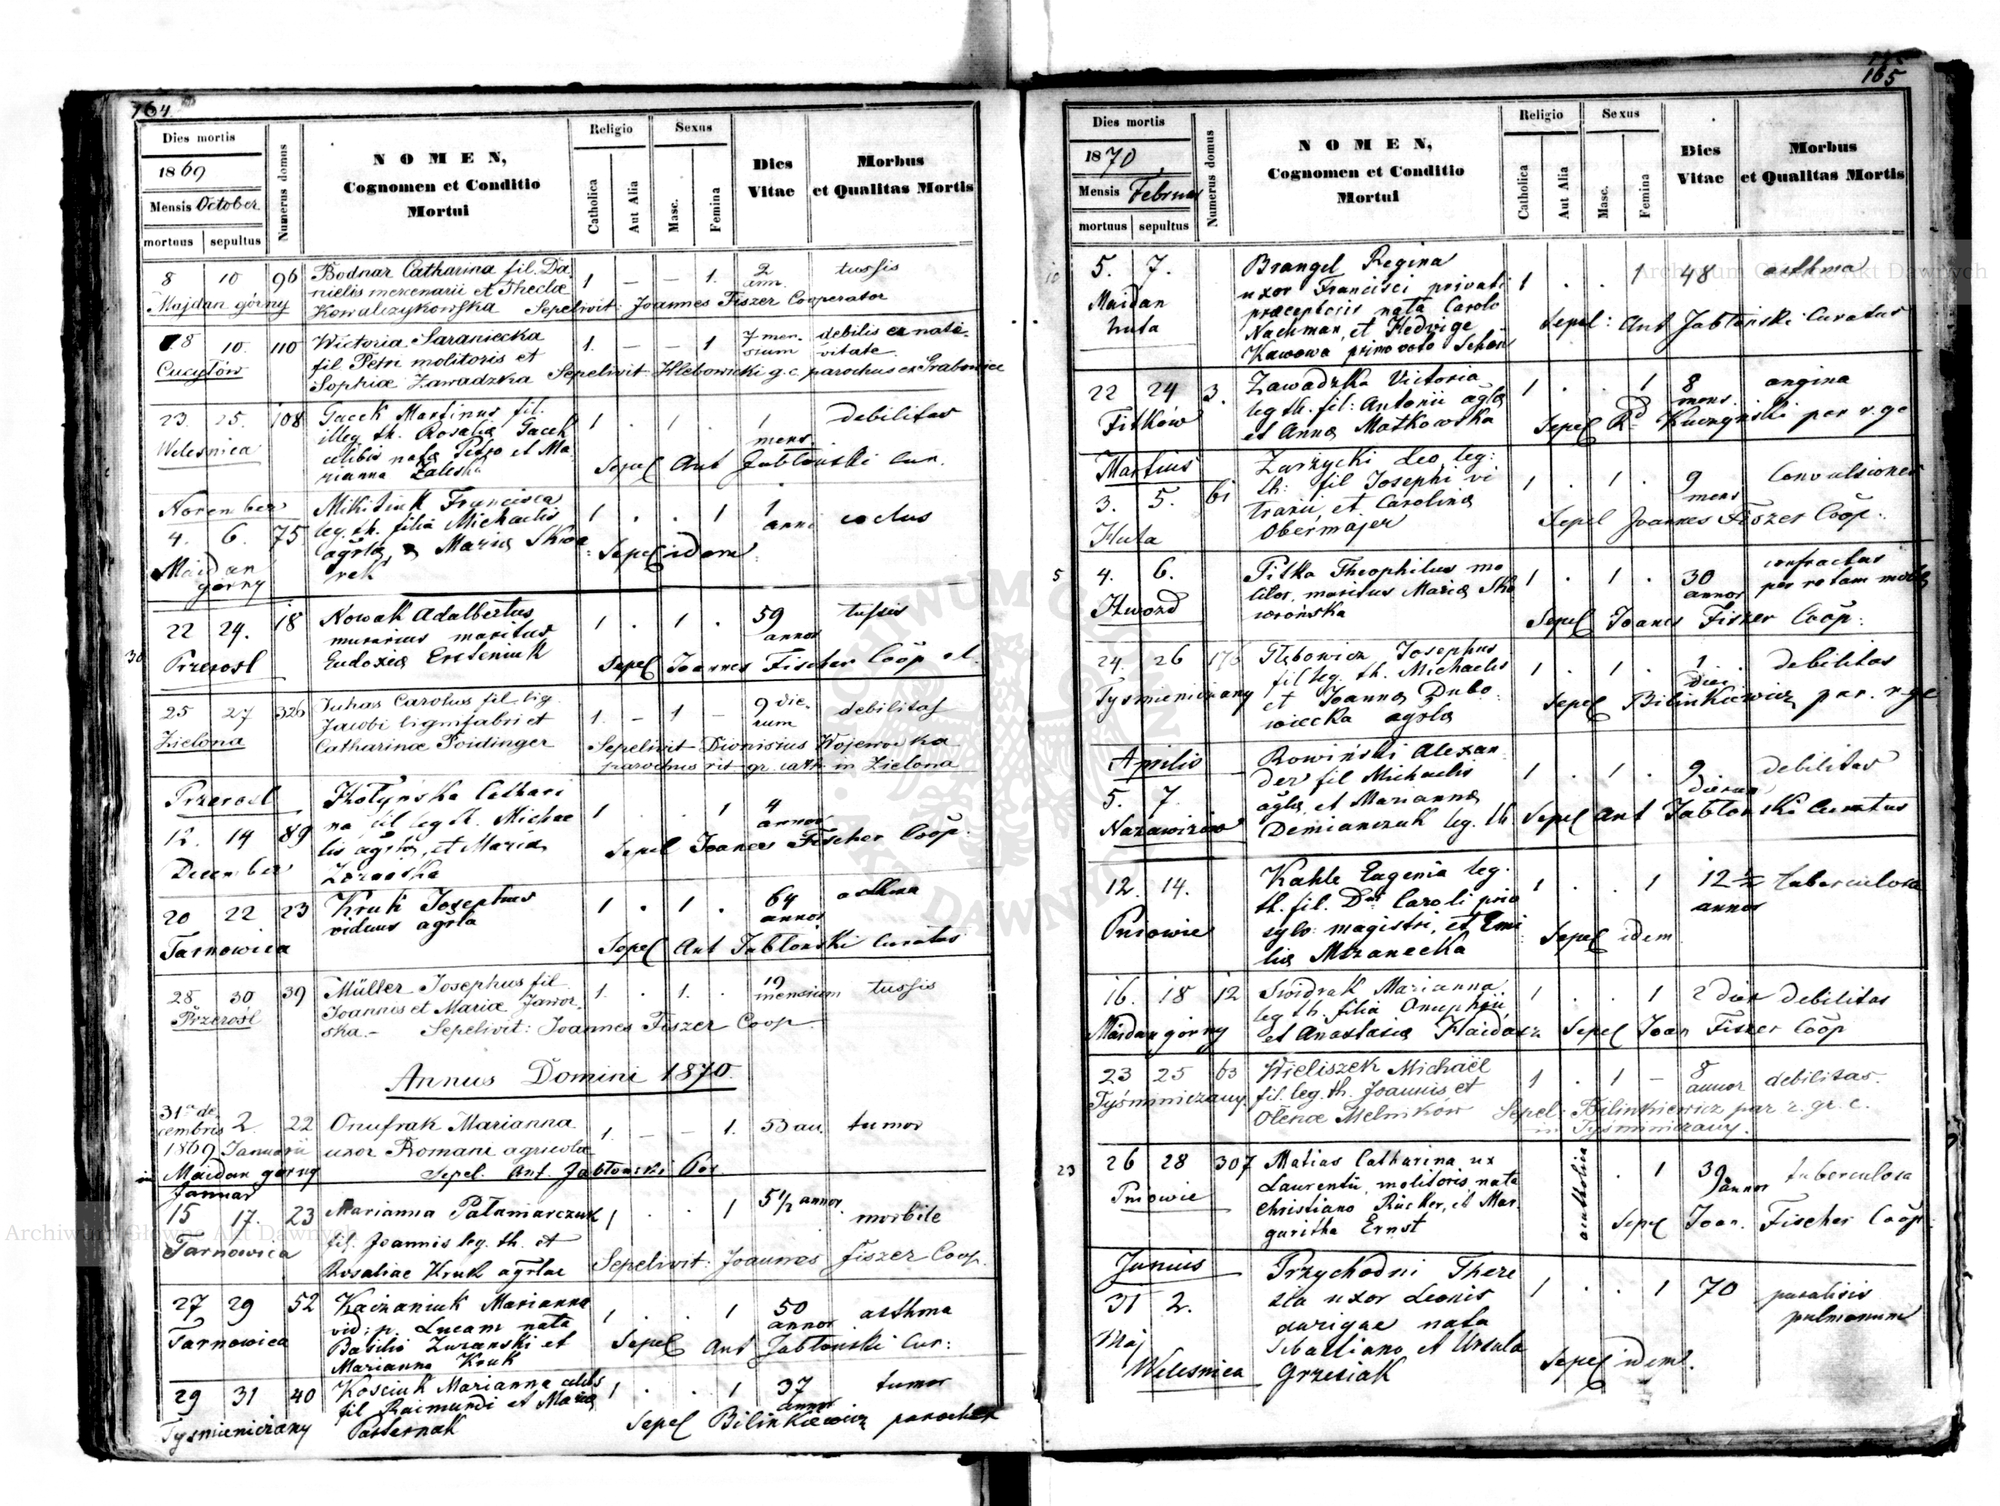 164
Dies mortis
1869
Mensis October
mortuus sepultus
Numerus domus
NOMEN,
Cognomen et Conditio
Mortui
Religio
Catholica
Aut Alia
Sexus
Masc.
Femina
Dies
Vitae
Morbus
et Qualitas Mortis
8 10 96 Bodnar Catharina fil. Da 1 — — 1. 2 tussis
nielis mercenarii et Theclæ ann.
Majdan górny Kowalczykowska Sepelivit: Joannes Fiszer Cooperator
8 10. 110 Wictoria Saraniecka 1. — — 1 7 men debilis ex nati
fil Petri molitoris et sium vitate.
Cucyłów Sophiæ Zawadzka Sepelivit: Hlebowicki g. c. parochus ex Grabowiec
23. 25. 108 Gacek Martinus fil. 1 . 1 . 1 debilitas
illeg. th. Rosaliæ Gacek mens.
Welesnica celibis nata Petro et Ma
rianna Zaleska Sepel Ant Jabłonski Cur.
November Mikitiuk Francisca 1 . . 1 1
leg. th. filia Michaelis anni
4. 6. 75 agrlæ, Mariæ Skow
rek Sepel idem
Maidan
górny
22 24. 18 Nowak Adalbertus 1 . 1 . 59 tussis
murarius maritus annor
30 Przerosl Eudoxiæ Ereteniuk Sepel Joannes Fischer Coop
25 27 326 Juhas Carolus fil. leg. 1. — 1 — 9 die debilitas
Jacobi lignifabri et rum
Zielona Catharinæ Poidinger Sepelivit Dionisius Wojewodka
parochus rit. gr. cath. in Zielona
Przerosl
12. 14 89 na fil leg th. Michae 1 . . 1 4
lis agrlæ, et Mariæ annor
Sepel Joannes Fischer Coop.
December
20 22 23 Kruk Josephus 1 . 1 . 64 asthma
viduus agrla annor
Tarnowica Sepel Ant Jabłoński Curatus
28 30 39 Müller Josephus fil. 1. . 1. . 19 tussis
Przerosl Joannis et Mariæ Jawor mensium
ska.— Sepelivit: Joannes Fiszer Coop.
Annus Domini 1870.
31 de
cembris 2. 22 Onufrak Marianna 1. — — 1. 53 an. tumor
1869 Januarii uxor Romani agricolæ
Maidan górny Sepel. Ant. Jabłonski
Januar
15 17. 23 Marianna Palamarczuk 1 . . 1 5 1/2 annor. morbile
Tarnowica fil. Joannis leg. th. et
Rosaliae Kruk agrlae Sepelivit: Joannes Fiszer Coop.
27 29 52 Kaczaniuk Marianna 1 . . 1 50 asthma
vid: p. Lucam nata annor
Tarnowica Basilio Zuranski et Sepel Ant Jabłonski Cur:
Marianna Kruk
29 31 40 Kosciuk Marianna celebs 1 . . 1 37 tumor
fil Raimundi et Mariæ annor
Tysmieniczany Pasternak Sepel Bilinkiewicz parochus
165
Dies mortis
1870
Mensis Februar
mortuus sepultus
Numerus domus
NOMEN,
Cognomen et Conditio
Mortui
Religio
Catholica
Aut Alia
Sexus
Masc.
Femina
Dies
Vitae
Morbus
et Qualitas Mortis
10 5. 7. Brangel Regina 1 . . 1 48 asthma
uxor Francisci privati
Maidan præceptoris nata Carolo Sepel: Ant Jabłonski Curatus
huta Nachman, et Hedwige
Kawowa primo voto
22 24 3. Zawadzka Victoria 1 . . 1 8 angina
leg th. fil: Antonii agrlæ mens.
Fitków et Annæ Matkowska Sepel Rd Kuczyński par r. gc
Martius Zarzycki Leo leg: 1 . 1 . 9 Convulsiones
3. 5. 61 th: fil Josephi vi mens
trarii, et Carolinæ Sepel Joannes Fiszer Coop:
Huta Obermajer
5 4. 6. Pitka Theophilus mo 1 . 1 . 30 confractus
litor, maritus Mariæ Sko annor per rotam molæ
Hwozd wrońska Sepel Joanes Fiszer Coop:
24. 26 176 Głębowicz Josephus 1 . 1 . 1 debilitas
fil leg. th. Michaelis diei
Tysmieniczany et Joannæ Dubo Sepel Bilinkiewicz par. r. gc
wiecka agrlæ
Aprilis Rowiński Alexan 1 . 1 . 9 debilitas
der fil Michaelis dierum
5. 7. agrlæ, et Mariannæ
Nazawizów Demianczuk leg. th. Sepel Ant Jabłonski Curatus
12. 14. Kahle Eugenia leg. 1 . . 1 12 tuberculosa
th. fil. Dni Caroli prio annor
Pniowie sylv: magistri, et Emi
liæ Mrzanecka Sepel idem
16. 18 12 Swidrak Marianna 1 . . 1 2 dier debilitas
leg th. filia Onuphrii,
Maidan górny et Anastasiæ Haidasz Sepel Joan Fiszer Coop
23 25 63 Wieliszek Michaël 1 . 1 — 8 debilitas.
fil. leg. th. Joannis et annor
Tyśminiczany. Olenæ Melników Sepel: Bilinkiewicz par r. gr. c.
in Tyśminiczany.
23 26 28 307 Matias Catharina ux 1 39 tuberculosa
Laurentii, molitoris nata annor
Pniowie Christiano Rücker, et Mar
garitha Ernst Sepel Joan. Fischer Coop:
Junius Przychodni There 1 . . 1 70 paralisis
31 2. sia uxor Leonis pulmonum
aurigae nata
Maj Sebastiano et Ursula
Welesnica Grzesiak Sepel idem.
Archiwum Główne Akt Dawnych